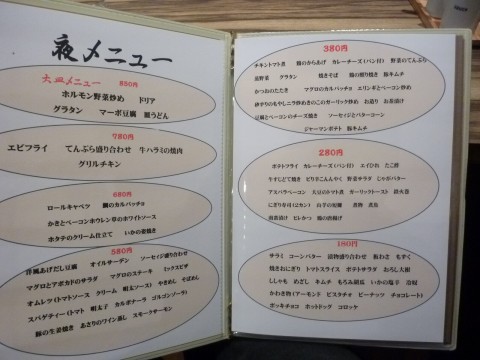 夜メニュー
大皿メニュー 880円
ホルモン野菜炒め ドリア
グラタン マーボ豆腐 鍋うどん
780円
エビフライ てんぷら盛り合わせ 牛ハラミの焼肉
グリルチキン
680円
ロールキャベツ 鯛のカルパッチョ
かきとベーコンホウレン草のホワイトソース
ホタテのクリーム仕立て いかの姿焼き
580円
洋風あげだし豆腐 オイルサーデン ソーセジ盛り合わせ
マグロとアボカドのサラダ マグロのステーキ ミックスピザ
オムレツ(トマトソース クリーム 明太ソース) やきめし そばめし
スパゲティー(トマト 明太子 カルボナーラ ゴルゴンゾーラ)
豚の生姜焼き あさりのワイン蒸し スモークサーモン
380円
チキントマト煮 鶏のからあげ カレーチーズ(パン付) 野菜のてんぷら
温野菜 グラタン 焼きそば 鶏の照り焼き 豚キムチ
かつおのたたき マグロのカルパッチョ エリンギとベーコン炒め
砂ずりのもやしニラ炒めきのこのガーリック炒め お造り お茶漬け
豆腐とベーコンのチーズ焼き ソーセィジとバターコーン
ジャーマンポテト 豚キムチ
280円
ポテトフライ カレーチーズ(パン付) エイひれ たこ酢
牛すじどて焼き ピリ辛こんにゃく 野菜サラダ じゃがバター
アスパラベーコン 大豆のトマト煮 ガーリックトースト 揚げ
にぎり寿司(2カン) 煮物
ヒレかつ 鶏の唐揚げ
180円
サラミ コーンバター 漬物盛り合わせ 板わさ もずく
焼きおにぎり トマトスライス ポテトサラダ おろし大根
ししゃも めざし キムチ もろみ胡瓜 いかの塩辛 冷奴
かわき物(アーモンド ピスタチオ ピーナッツ チョコレート)
ポッキチョコ ホットドッグ コロッケ